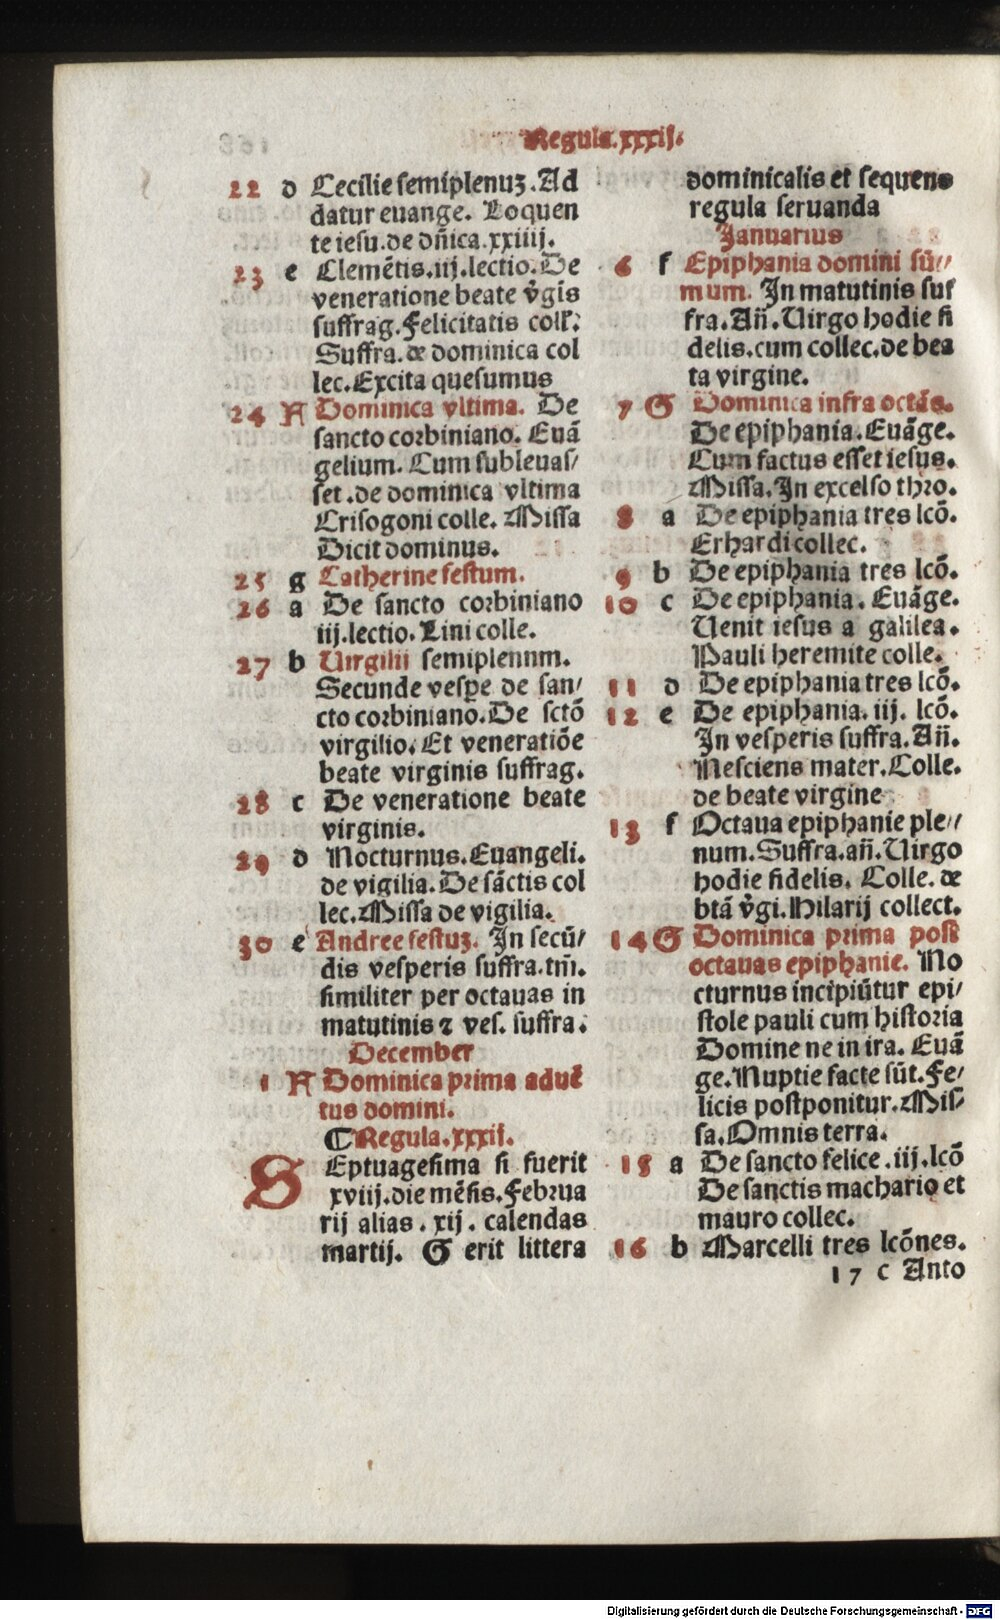 Regula.xxxij.
22 d Cecilie semiplenuꝫ. Ad
datur euange. Loquen
te iesu.de dñica.xxiiij.
23 e Clemẽtis.iij.lectio.De
veneratione beate v̉gĩs
suffrag.Felicitatis coll̛.
Suffra.de dominica col
lec.Excita quesumus
24 A Dominica vltima. De
sancto corbiniano. Euã
gelium. Cum subleuas/
set.de dominica vltima
Crisogoni colle. Missa
Dicit dominus.
25 g Catherine festum.
26 a De sancto corbiniano
iij.lectio. Lini colle.
27 b Uirgilii semiplennm.
Secunde vesꝑe de san/
cto corbiniano.De sctõ
virgilio. Et veneratiõe
beate virginis suffrag.
28 c De veneratione beate
virginis.
29 d Nocturnus. Euangeli.
de vigilia. De sãctis col
lec.Missa de vigilia.
30 e Andree festuꝫ. In secũ/
dis vesperis suffra.tm̃.
similiter per octauas in
matutinis ⁊ ves. suffra.
December
1 A Dominica prima aduẽ
tus domini.
¶ Regula.xxxij.
SEptuagesima si fuerit
xviij.die mẽsis. Februa
rij alias. xij. calendas
martij. G erit littera
dominicalis et sequens
regula seruanda
Januarius
6 f Epiphania domini sũ//
mum. In matutinis suf
fra. Añ. Uirgo hodie fi
delis.cum collec.de bea
ta virgine.
7 G Dominica infra octãs.
De epiphania. Euãge.
Cum factus esset iesus.
Missa. In excelso thro.
8 a De epiphania tres lcõ.
Erhardi collec.
9 b De epiphania tres lcõ.
10 c De epiphania. Euãge.
Uenit iesus a galilea.
Pauli heremite colle.
11 d De epiphania tres lcõ.
12 e De epiphania. iij. lcõ.
In vesperis suffra. Añ.
Nesciens mater. Colle.
de beate virgine
13 f Octaua epiphanie ple//
num. Suffra. añ. Uirgo
hodie fidelis. Colle. de
btã v̉gi. Hilarij collect.
14 G Dominica prima post
octauas epiphanie. No
cturnus incipiũtur epi/
stole pauli cum historia
Domine ne in ira. Euã
ge. Nuptie facte sũt. Fe/
licis postponitur. Mis/
sa. Omnis terra.
15 a De sancto felice. iij. lcõ
De sanctis machario et
mauro collec.
16 b Marcelli tres lcões.
17 c Anto
Digitalisierung gefördert durch die Deutsche Forschungsgemeinschaft - DFG